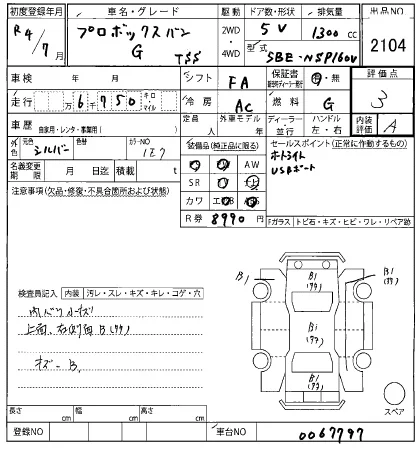 初度登録年月 車名・グレード 駆動 ドア数・形状 排気量 出品NO
R4/7月 プロボックスバン G TSS 2WD 4WD 5V 1300cc 2104
型式 5BE-NSP160V
車検 年 月 シフト FA 保証書 有・無 評価点
走行 万6千750 キロ・マイル 冷房 AC 燃料 G 3
車歴 自家用・レンタ・事業用( ) 定員 人 外車モデル 年 ディーラー・並行 ハンドル 左・右 内装評価 A
外色 元色 シルバー 色替 カラーNO 1E7 装備品(純正品に限る) セールスポイント(正常に作動するもの)
名義変更期限 月 日迄 積載 t AW オートライト
SR USBポート
注意事項(欠品・修復・不具合箇所および状態) カワ
R券 8990円
Fガラス トビ石・キズ・ヒビ・ワレ・リペア跡
検査員記入 内装 汚レ・スレ・キズ・キレ・コゲ・穴
上面、右側面 B(アサ)
キズ B
B1
B1
(アサ)
B1
(アサ)
B1
(アサ)
B1
(アサ)
スペア
長さ cm 幅 cm 高さ cm
登録NO 車台NO 0067797